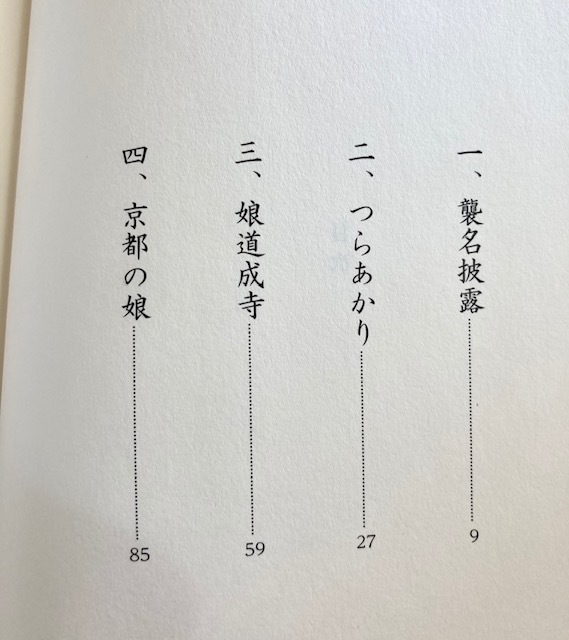 一、襲名披露……9
二、つらあかり……27
三、娘道成寺……59
四、京都の娘……85